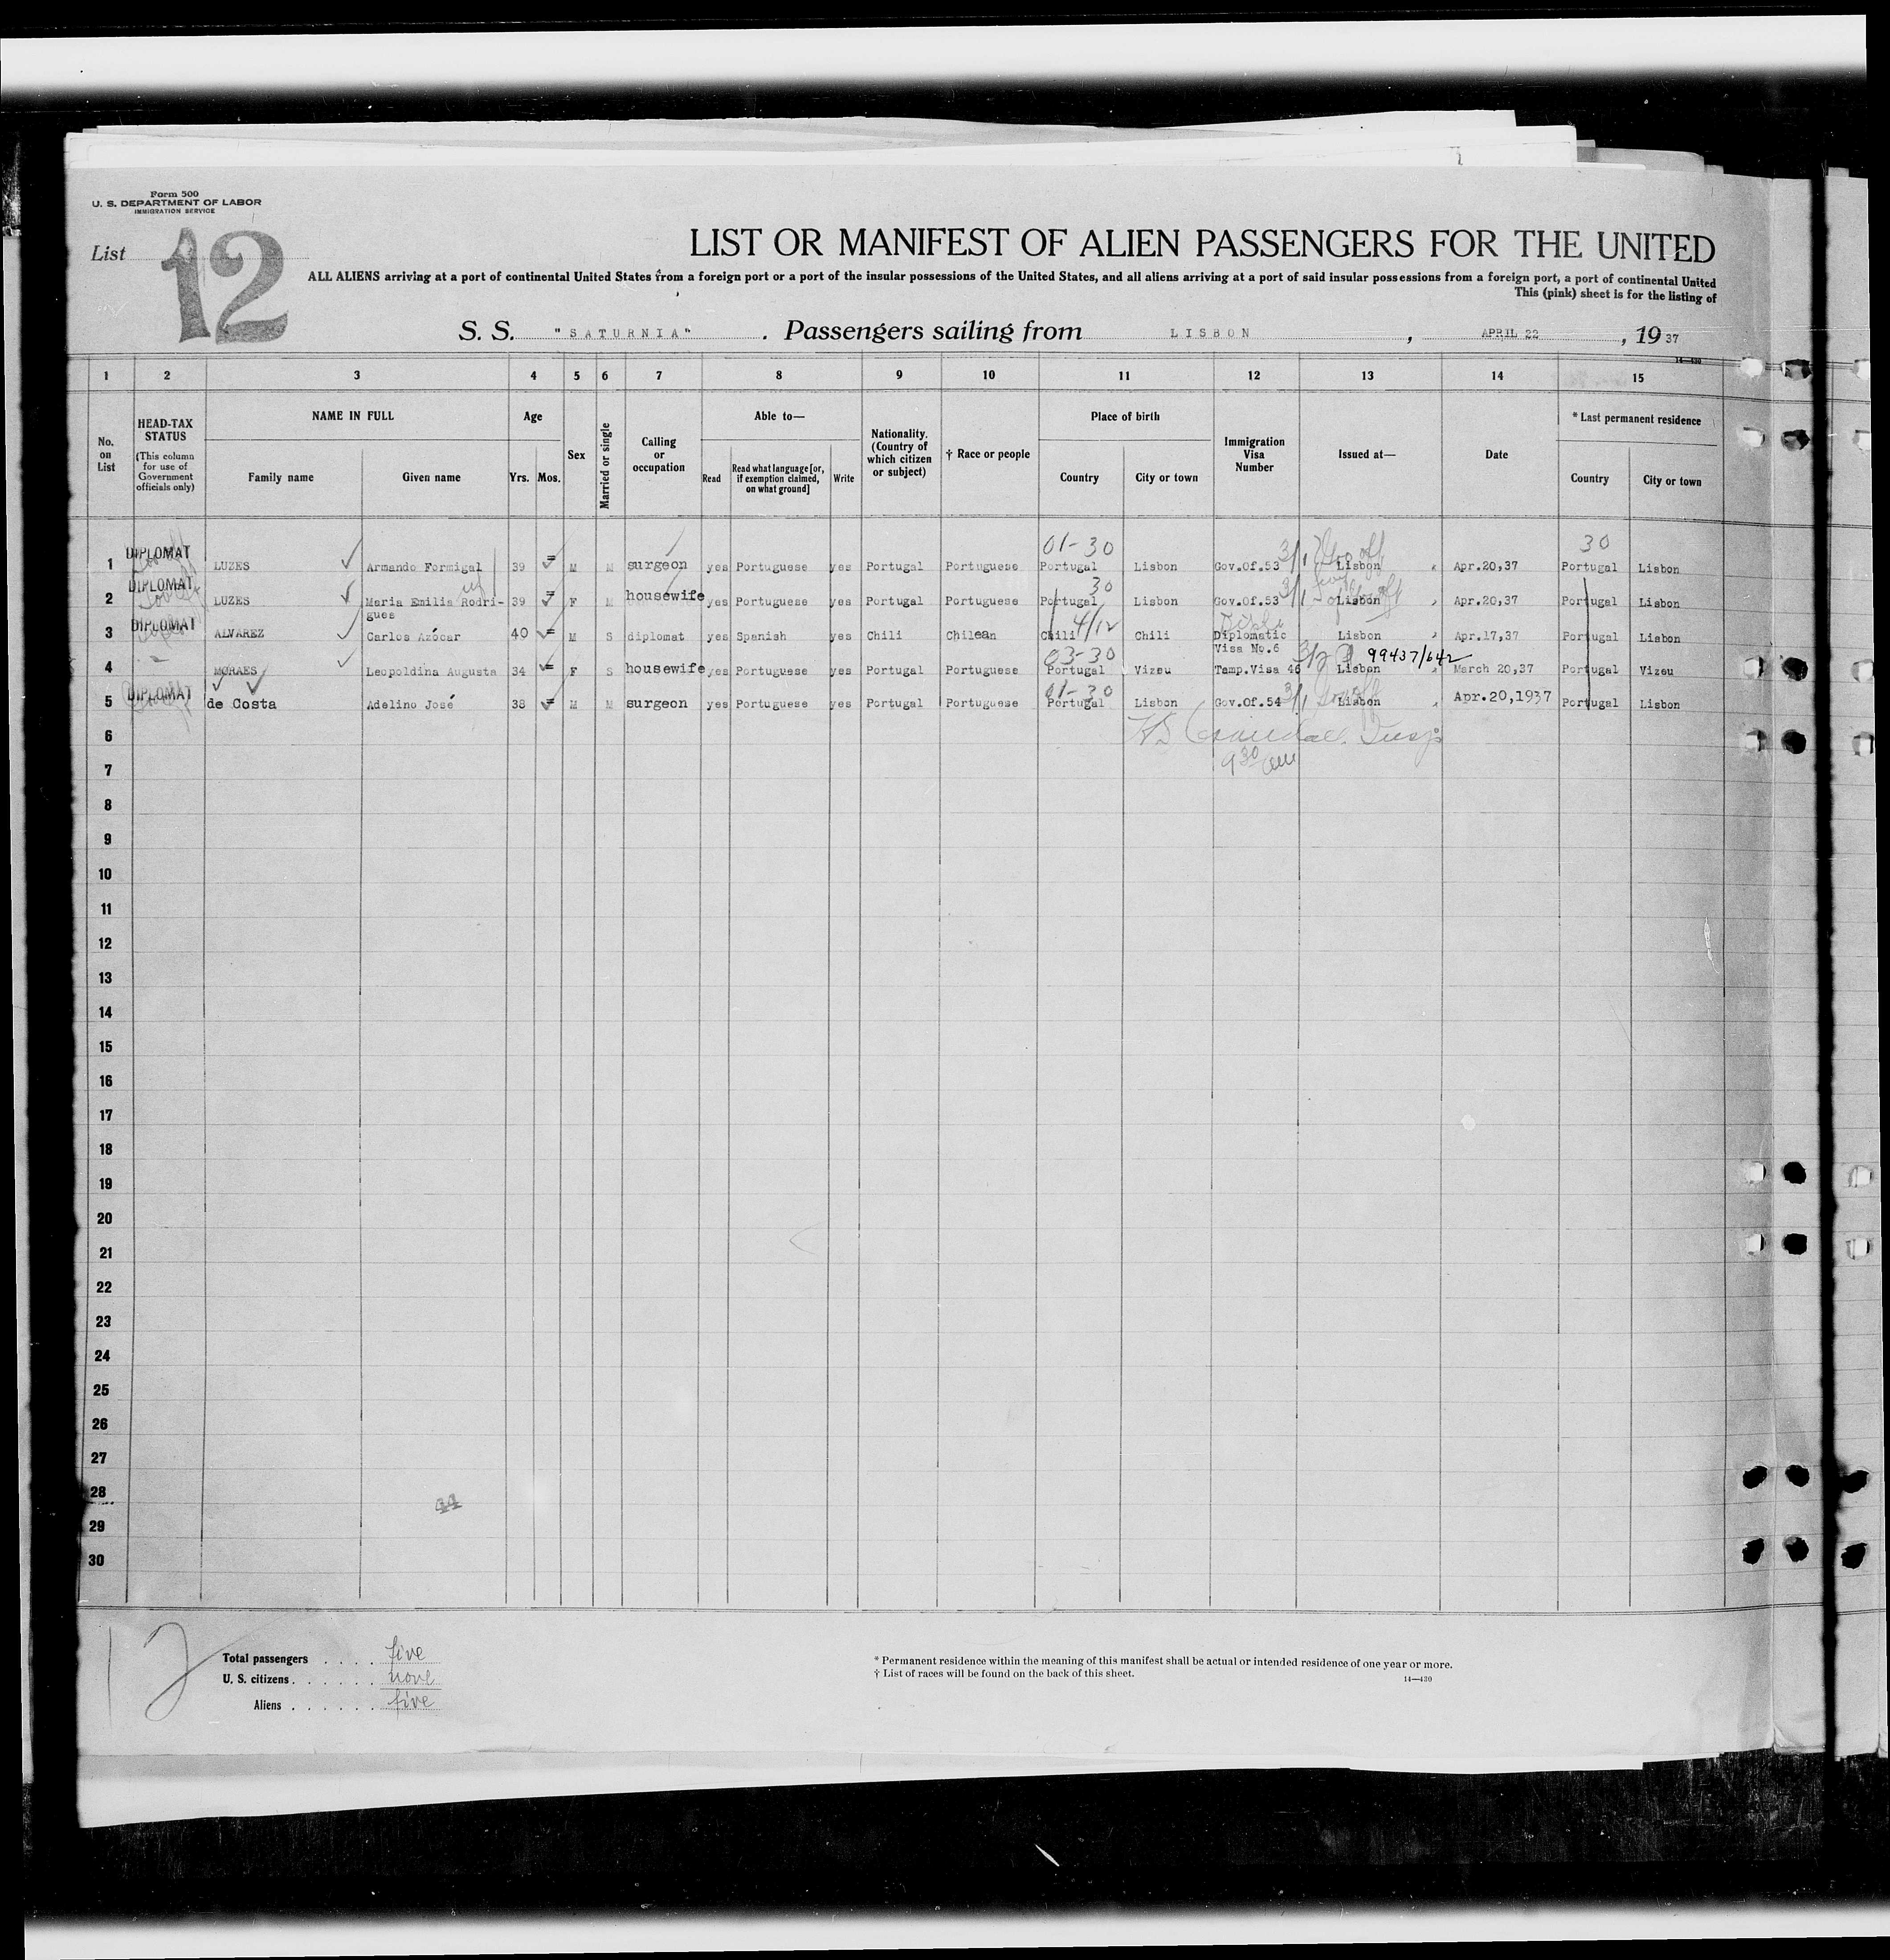 Form 500
U. S. DEPARTMENT OF LABOR
IMMIGRATION SERVICE
List 12
LIST OR MANIFEST OF ALIEN PASSENGERS FOR THE UNITED
ALL ALIENS arriving at a port of continental United States from a foreign port or a port of the insular possessions of the United States, and all aliens arriving at a port of said insular possessions from a foreign port, a port of continental United
This (pink) sheet is for the listing of
S. S. "SATURNIA" . Passengers sailing from LISBON , APRIL 22 , 1937
14—430
1 2 3 4 5 6 7 8 9 10 11 12 13 14 15
No. on List
HEAD-TAX STATUS
(This column for use of Government officials only)
NAME IN FULL
Family name Given name
Age
Yrs. Mos.
Sex
Married or single
Calling or occupation
Able to—
Read Read what language [or, if exemption claimed, on what ground] Write
Nationality. (Country of which citizen or subject)
† Race or people
Place of birth
Country City or town
Immigration Visa Number
Issued at—
Date
* Last permanent residence
Country City or town
01-30 30
1 DIPLOMAT LUZES Armando Formigal 39 M M surgeon yes Portuguese yes Portugal Portuguese Portugal Lisbon Gov.Of.53 3/1 Lisbon Apr.20,37 Portugal Lisbon
30
2 DIPLOMAT LUZES Maria Emilia Rodri-gues 39 F M housewife yes Portuguese yes Portugal Portuguese Portugal Lisbon Gov.Of.53 3/1 Lisbon Apr.20,37 Portugal Lisbon
4/12
3 DIPLOMAT ALVAREZ Carlos Azócar 40 M S diplomat yes Spanish yes Chili Chilean Chili Chili Diplomatic Visa No.6 Lisbon Apr.17,37 Portugal Lisbon
03-30 99437/642
4 MORAES Leopoldina Augusta 34 F S housewife yes Portuguese yes Portugal Portuguese Portugal Vizeu Temp.Visa 46 3/2 Lisbon March 20,37 Portugal Vizeu
01-30
5 DIPLOMAT de Costa Adelino José 38 M M surgeon yes Portuguese yes Portugal Portuguese Portugal Lisbon Gov.Of.54 3/1 Lisbon Apr.20,1937 Portugal Lisbon
6
7 9 30 am
8
9
10
11
12
13
14
15
16
17
18
19
20
21
22
23
24
25
26
27
28 44
29
30
12
Total passengers . . . . five
U. S. citizens . . . . . . none
Aliens . . . . . . five
* Permanent residence within the meaning of this manifest shall be actual or intended residence of one year or more.
† List of races will be found on the back of this sheet.
14—430